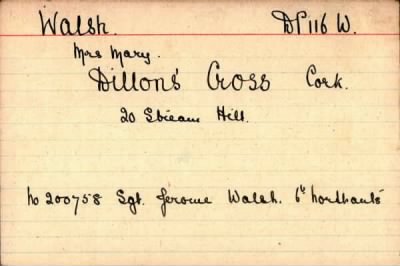 Walsh. DP 116 W.
Mrs Mary.
Dillon's Cross Cork.
20 Stream Hill.
No 200758 Sgt. Jerome Walsh. 6th Northants